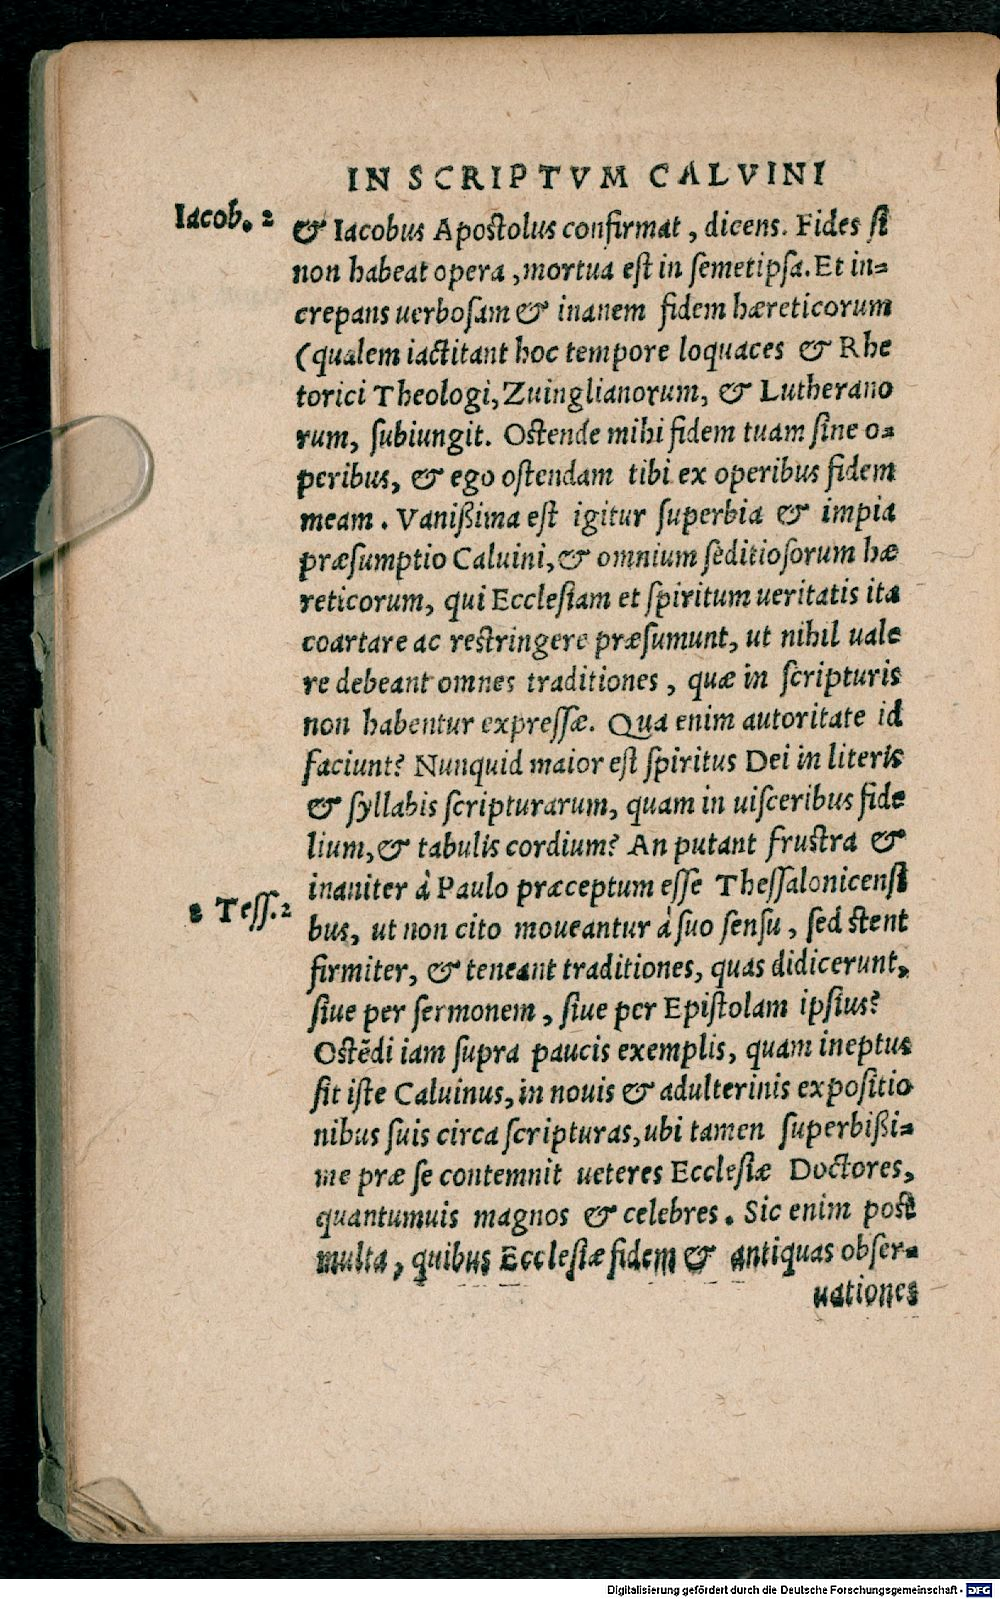 IN SCRIPTVM CALVINI
Iacob. 2
& Iacobus Apostolus confirmat, dicens. Fides si
non habeat opera, mortua est in semetipsa. Et in=
crepans uerbosam & inanem fidem hæreticorum
(qualem iactitant hoc tempore loquaces & Rhe
torici Theologi, Zuinglianorum, & Lutherano
rum, subiungit. Ostende mihi fidem tuam sine o=
peribus, & ego ostendam tibi ex operibus fidem
meam. Vanißima est igitur superbia & impia
præsumptio Caluini, & omnium seditiosorum hæ
reticorum, qui Ecclesiam et spiritum ueritatis ita
coartare ac restringere præsumunt, ut nihil uale
re debeant omnes traditiones, quæ in scripturis
non habentur expressæ. Qua enim autoritate id
faciunt? Nunquid maior est spiritus Dei in literis
& syllabis scripturarum, quam in uisceribus fide
lium, & tabulis cordium? An putant frustra &
inaniter à Paulo præceptum esse Thessalonicensi
2 Tess. 2
bus, ut non cito moueantur à suo sensu, sed stent
firmiter, & teneant traditiones, quas didicerunt,
siue per sermonem, siue per Epistolam ipsius?
Ostēdi iam supra paucis exemplis, quam ineptus
sit iste Caluinus, in nouis & adulterinis expositio
nibus suis circa scripturas, ubi tamen superbißi=
me præ se contemnit ueteres Ecclesiæ Doctores,
quantumuis magnos & celebres. Sic enim post
multa, quibus Ecclesiæ fidem & antiquas obser=
uationes
Digitalisierung gefördert durch die Deutsche Forschungsgemeinschaft - DFG